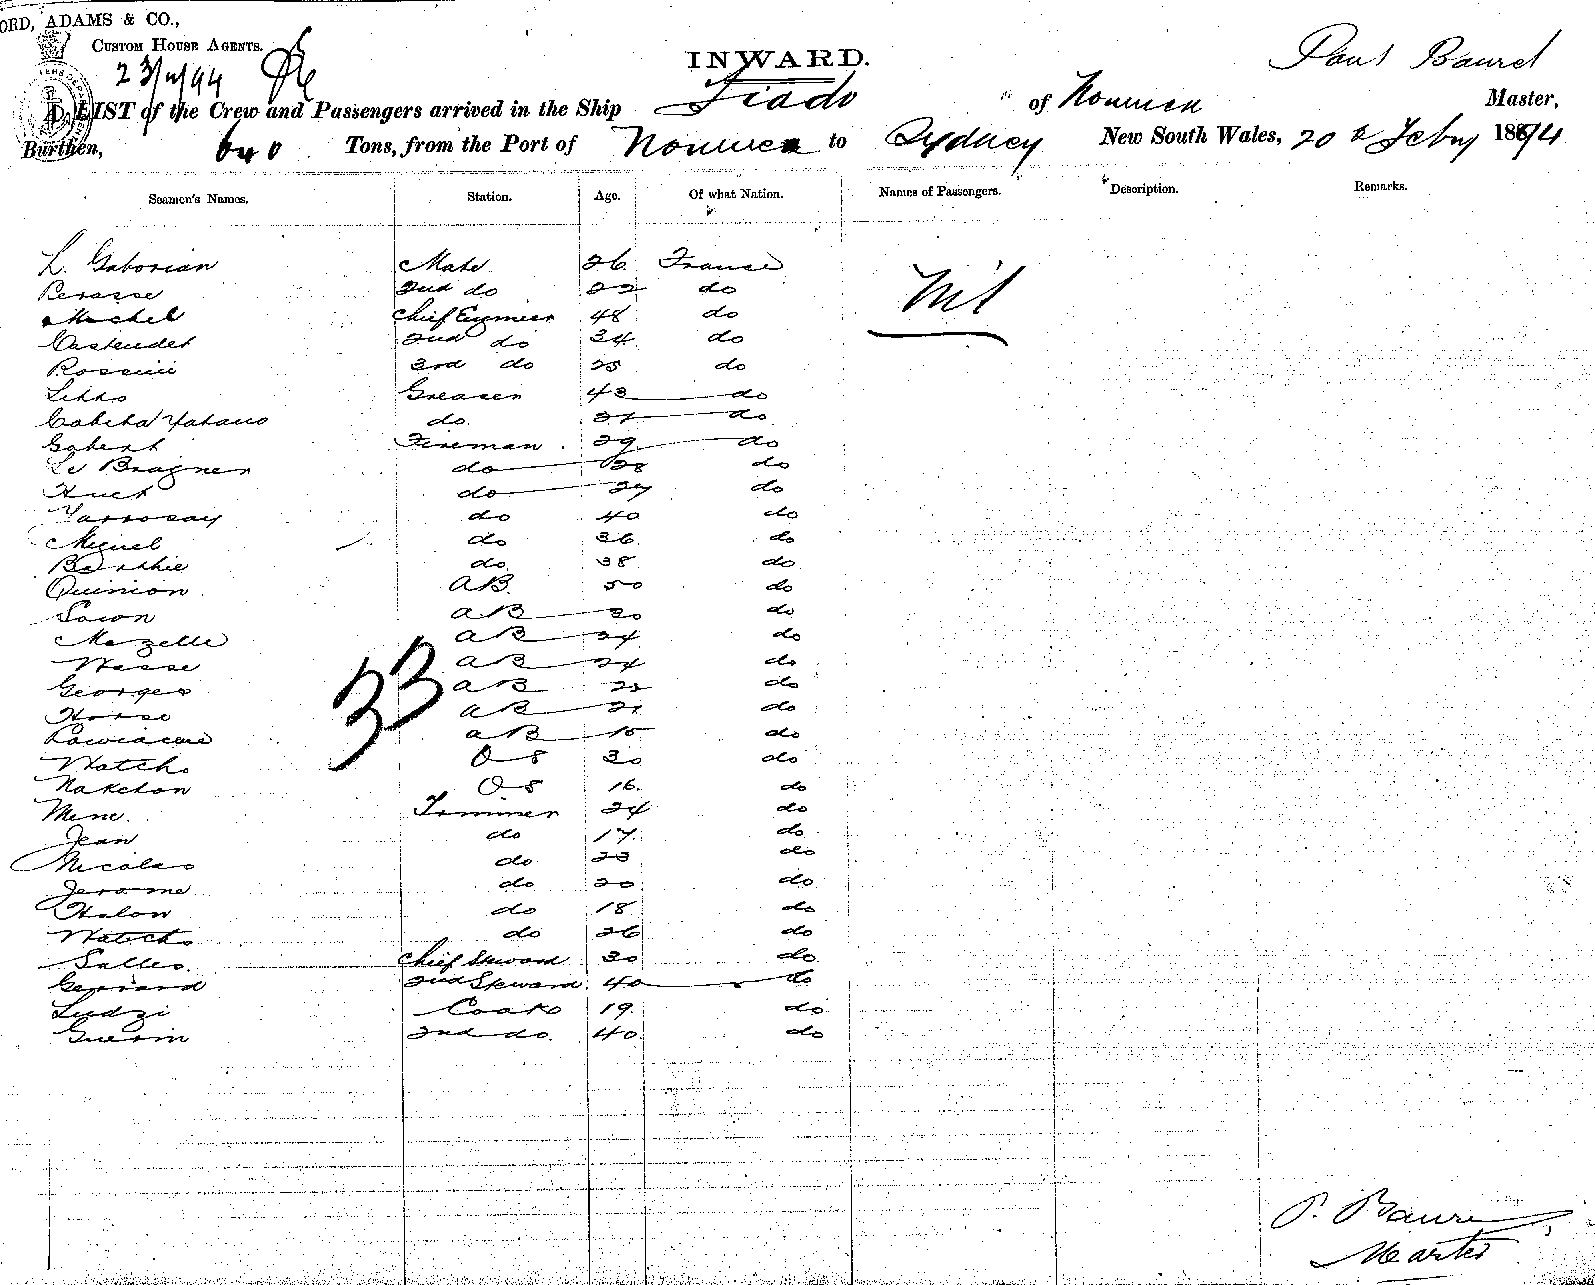 ORD, ADAMS & CO.,
CUSTOM HOUSE AGENTS.
INWARD.
Paul Baurel
LIST of the Crew and Passengers arrived in the Ship of Noumea Master,
Burthen, 640 Tons, from the Port of Noumea to Sydney New South Wales, 20th Feby 1894
Seamen's Names. Station. Age. Of what Nation. Names of Passengers. Description. Remarks.
L. Gaborian Mate 26 France Nil
2nd do 22 do
Michel Chief Engineer 48 do
Castendet 2nd do 34 do
Rossini 3rd do 25 do
Greaser 43 do
do do
Gobert Fireman 29 do
Le Bragner do 28 do
Huet do 27 do
do 40 do
Miguel do 36 do
Barthie do 38 do
Quinion AB 50 do
AB do
Mazelle AB 24 do
Wasse AB 24 do
Georges AB do
AB 21 do
AB do
Watcho OS 30 do
Naketon OS 16 do
Mene Trimmer 24 do
Jean do 17 do
Nicolas do 23 do
Jerome do 20 do
Halon do 18 do
Watcho do 26 do
33
Salles Chief Steward 30 do
Gerrard 2nd Steward 40 do
Ludzi Cook 19 do
Guerin 2nd do 40 do
P. Baurel
Master